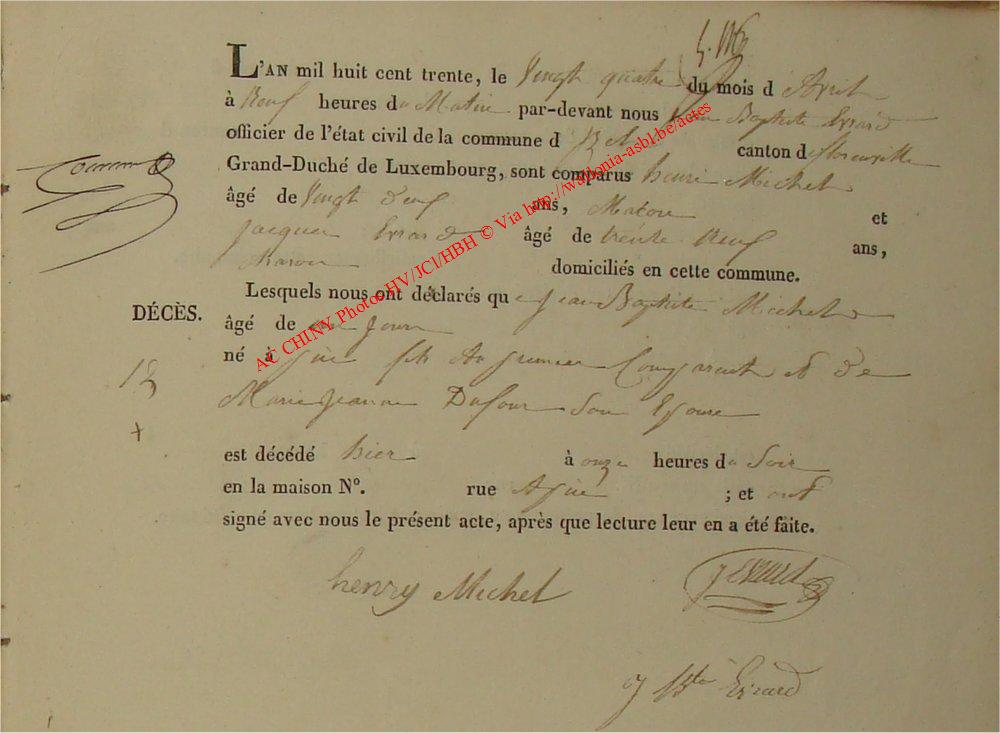 L'AN mil huit cent trente, le Vingt quatre du mois d Avril
à Neuf heures du Matin par-devant nous Jean Baptiste Evrard
officier de l'état civil de la commune d canton de florenville
Grand-Duché de Luxembourg, sont comparus henri Michel
âgé de Vingt Neuf ans, Macon et
Jacques Evrard âgé de trente Neuf ans,
domiciliés en cette commune.
DÉCÈS.
Lesquels nous ont déclarés que jean Baptiste Michel
âgé de un jour
né à fils du premier Comparant et de
Marie jeanne Dufour Son Epouse
est décédé hier à onze heures du Soir
en la maison N°. rue ; et ont
signé avec nous le présent acte, après que lecture leur en a été faite.
henry Michel
J Evrard
J Bte Evrard
AC CHINY Photos HV/JCl/HBH © Via http://wallonia-asbl.be/actes